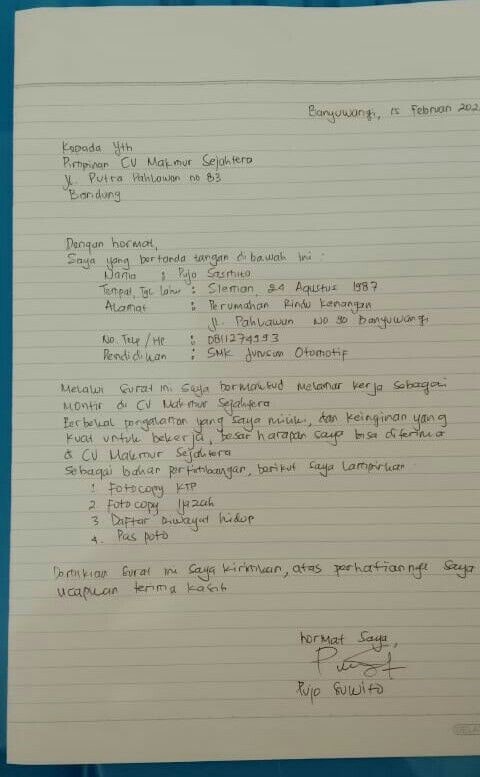 Banyuwangi, 15 Februari 202
Kepada Yth
Pimpinan CV Makmur Sejahtera
Jl. Putra Pahlawan no 83
Bandung
Dengan hormat,
Saya yang bertanda tangan dibawah ini :
Nama : Pujo Sasmito
Tempat, Tgl Lahir : Sleman, 24 Agustus 1987
Alamat : Perumahan Rindu Kenangan
Jl. Pahlawan No 90 Banyuwangi
No. Telp / HP : 0811274993
Pendidikan : SMK Jurusan Otomotif
Melalui surat ini saya bermaksud melamar kerja sebagai
montir di CV Makmur Sejahtera
Berbekal pengalaman yang saya miliki, dan keinginan yang
kuat untuk bekerja, besar harapan saya bisa diterima
di CV Makmur Sejahtera
Sebagai bahan pertimbangan, berikut saya lampirkan
1 Fotocopy KTP
2 Fotocopy Ijazah
3 Daftar Riwayat hidup
4. Pas poto
Demikian surat ini saya kirimkan, atas perhatiannya saya
ucapkan terima kasih
hormat Saya,
Pujo Suwito